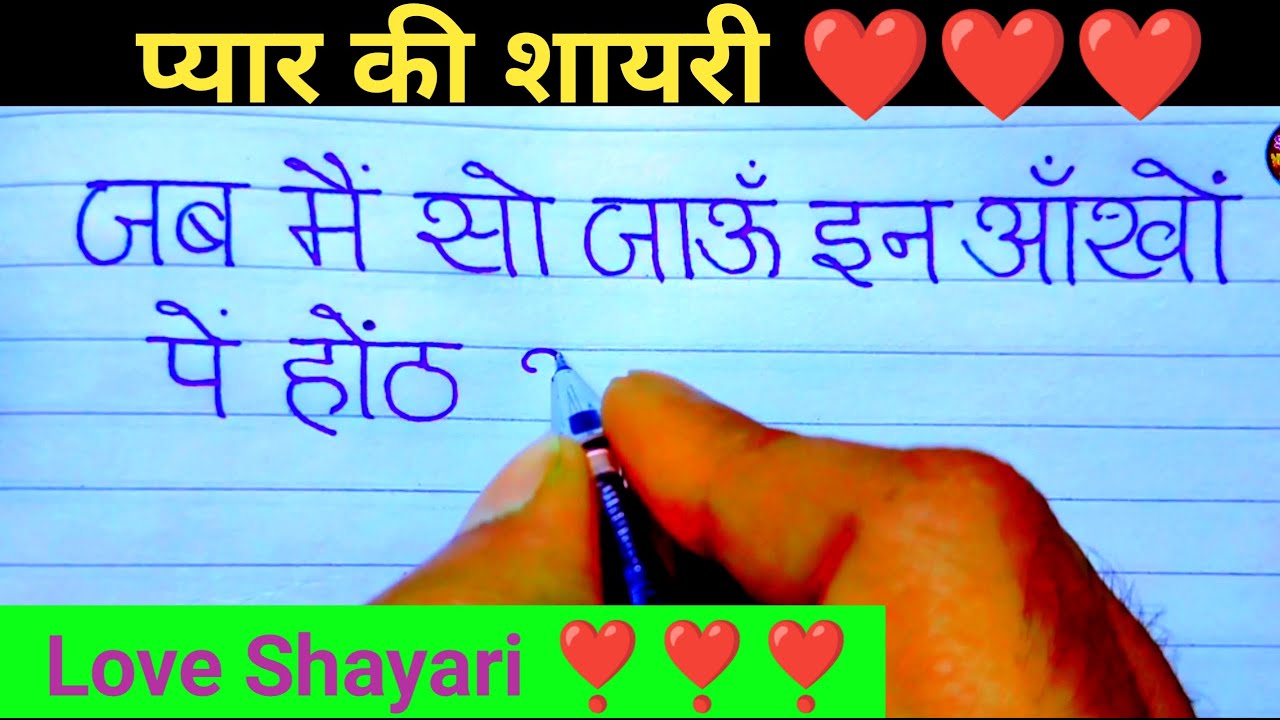 प्यार की शायरी ❤️❤️❤️
जब मैं सो जाऊँ इन आँखों
पें होंठ
Love Shayari ❣️❣️❣️